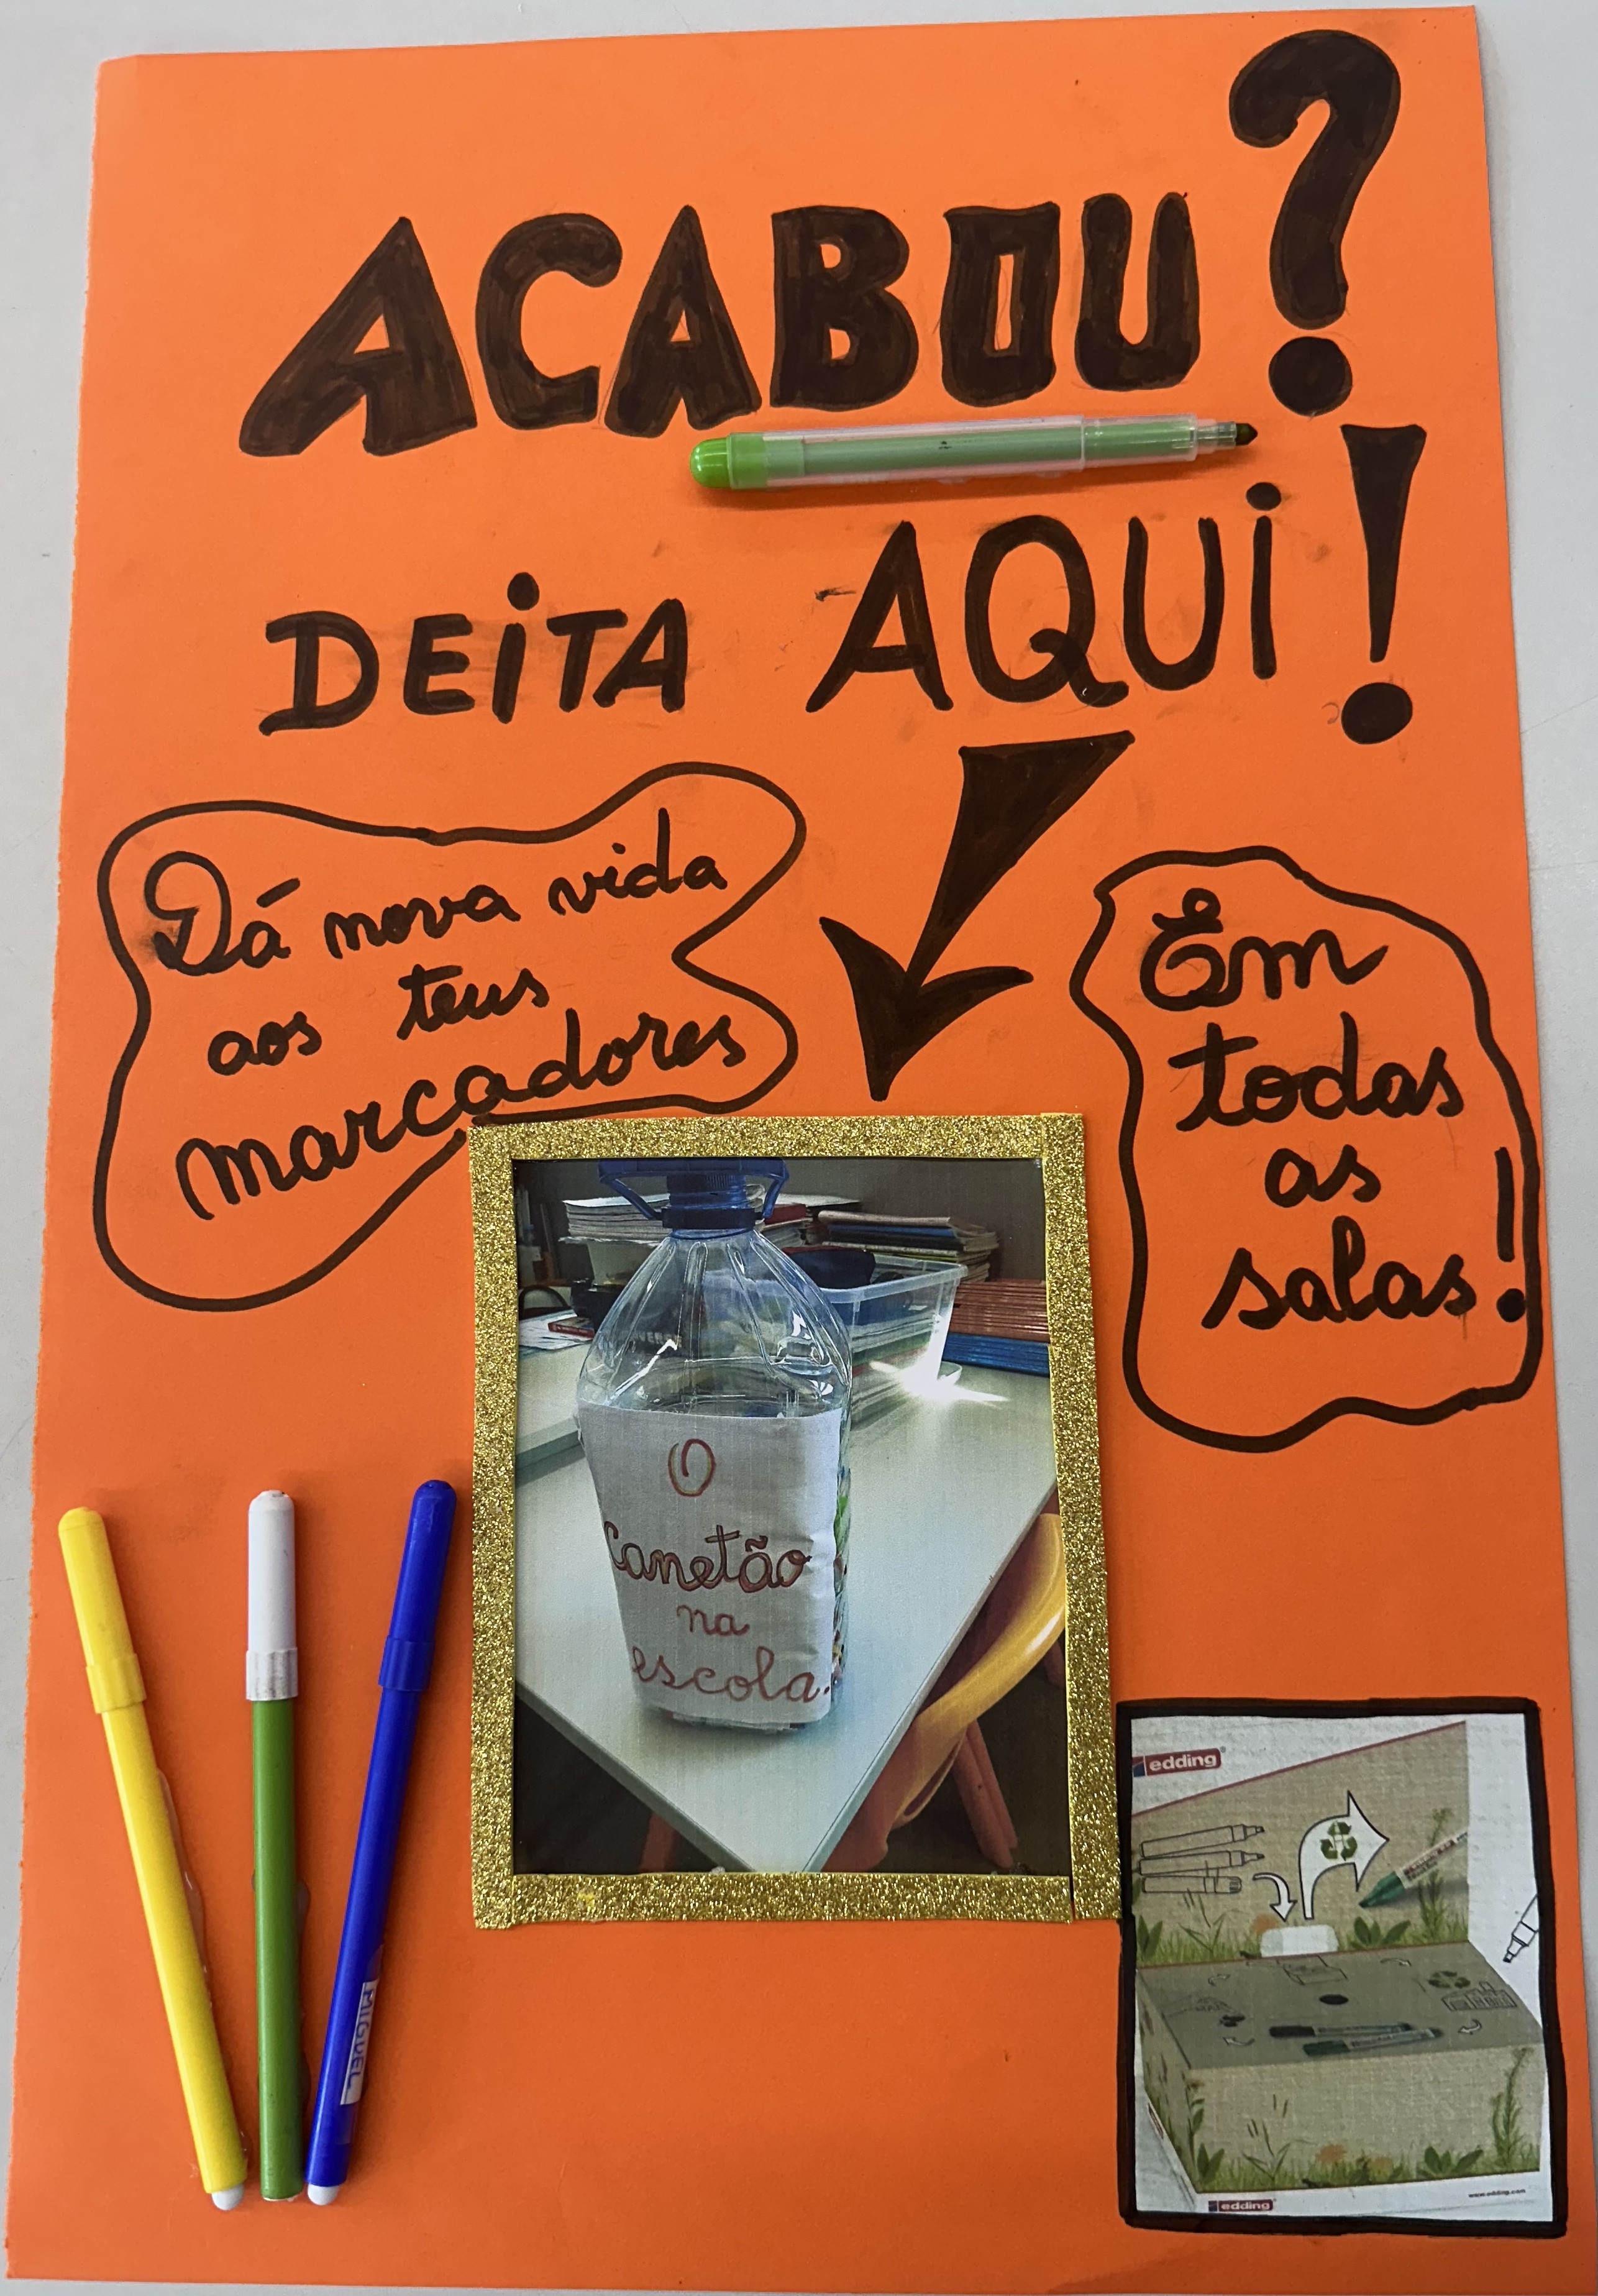 ACABOU?
DEITA AQUI!
Dá nova vida
aos teus
marcadores
Em
todas
as
salas!
O
Canetão
na
escola.
MIGUEL
edding
edding
www.edding.com